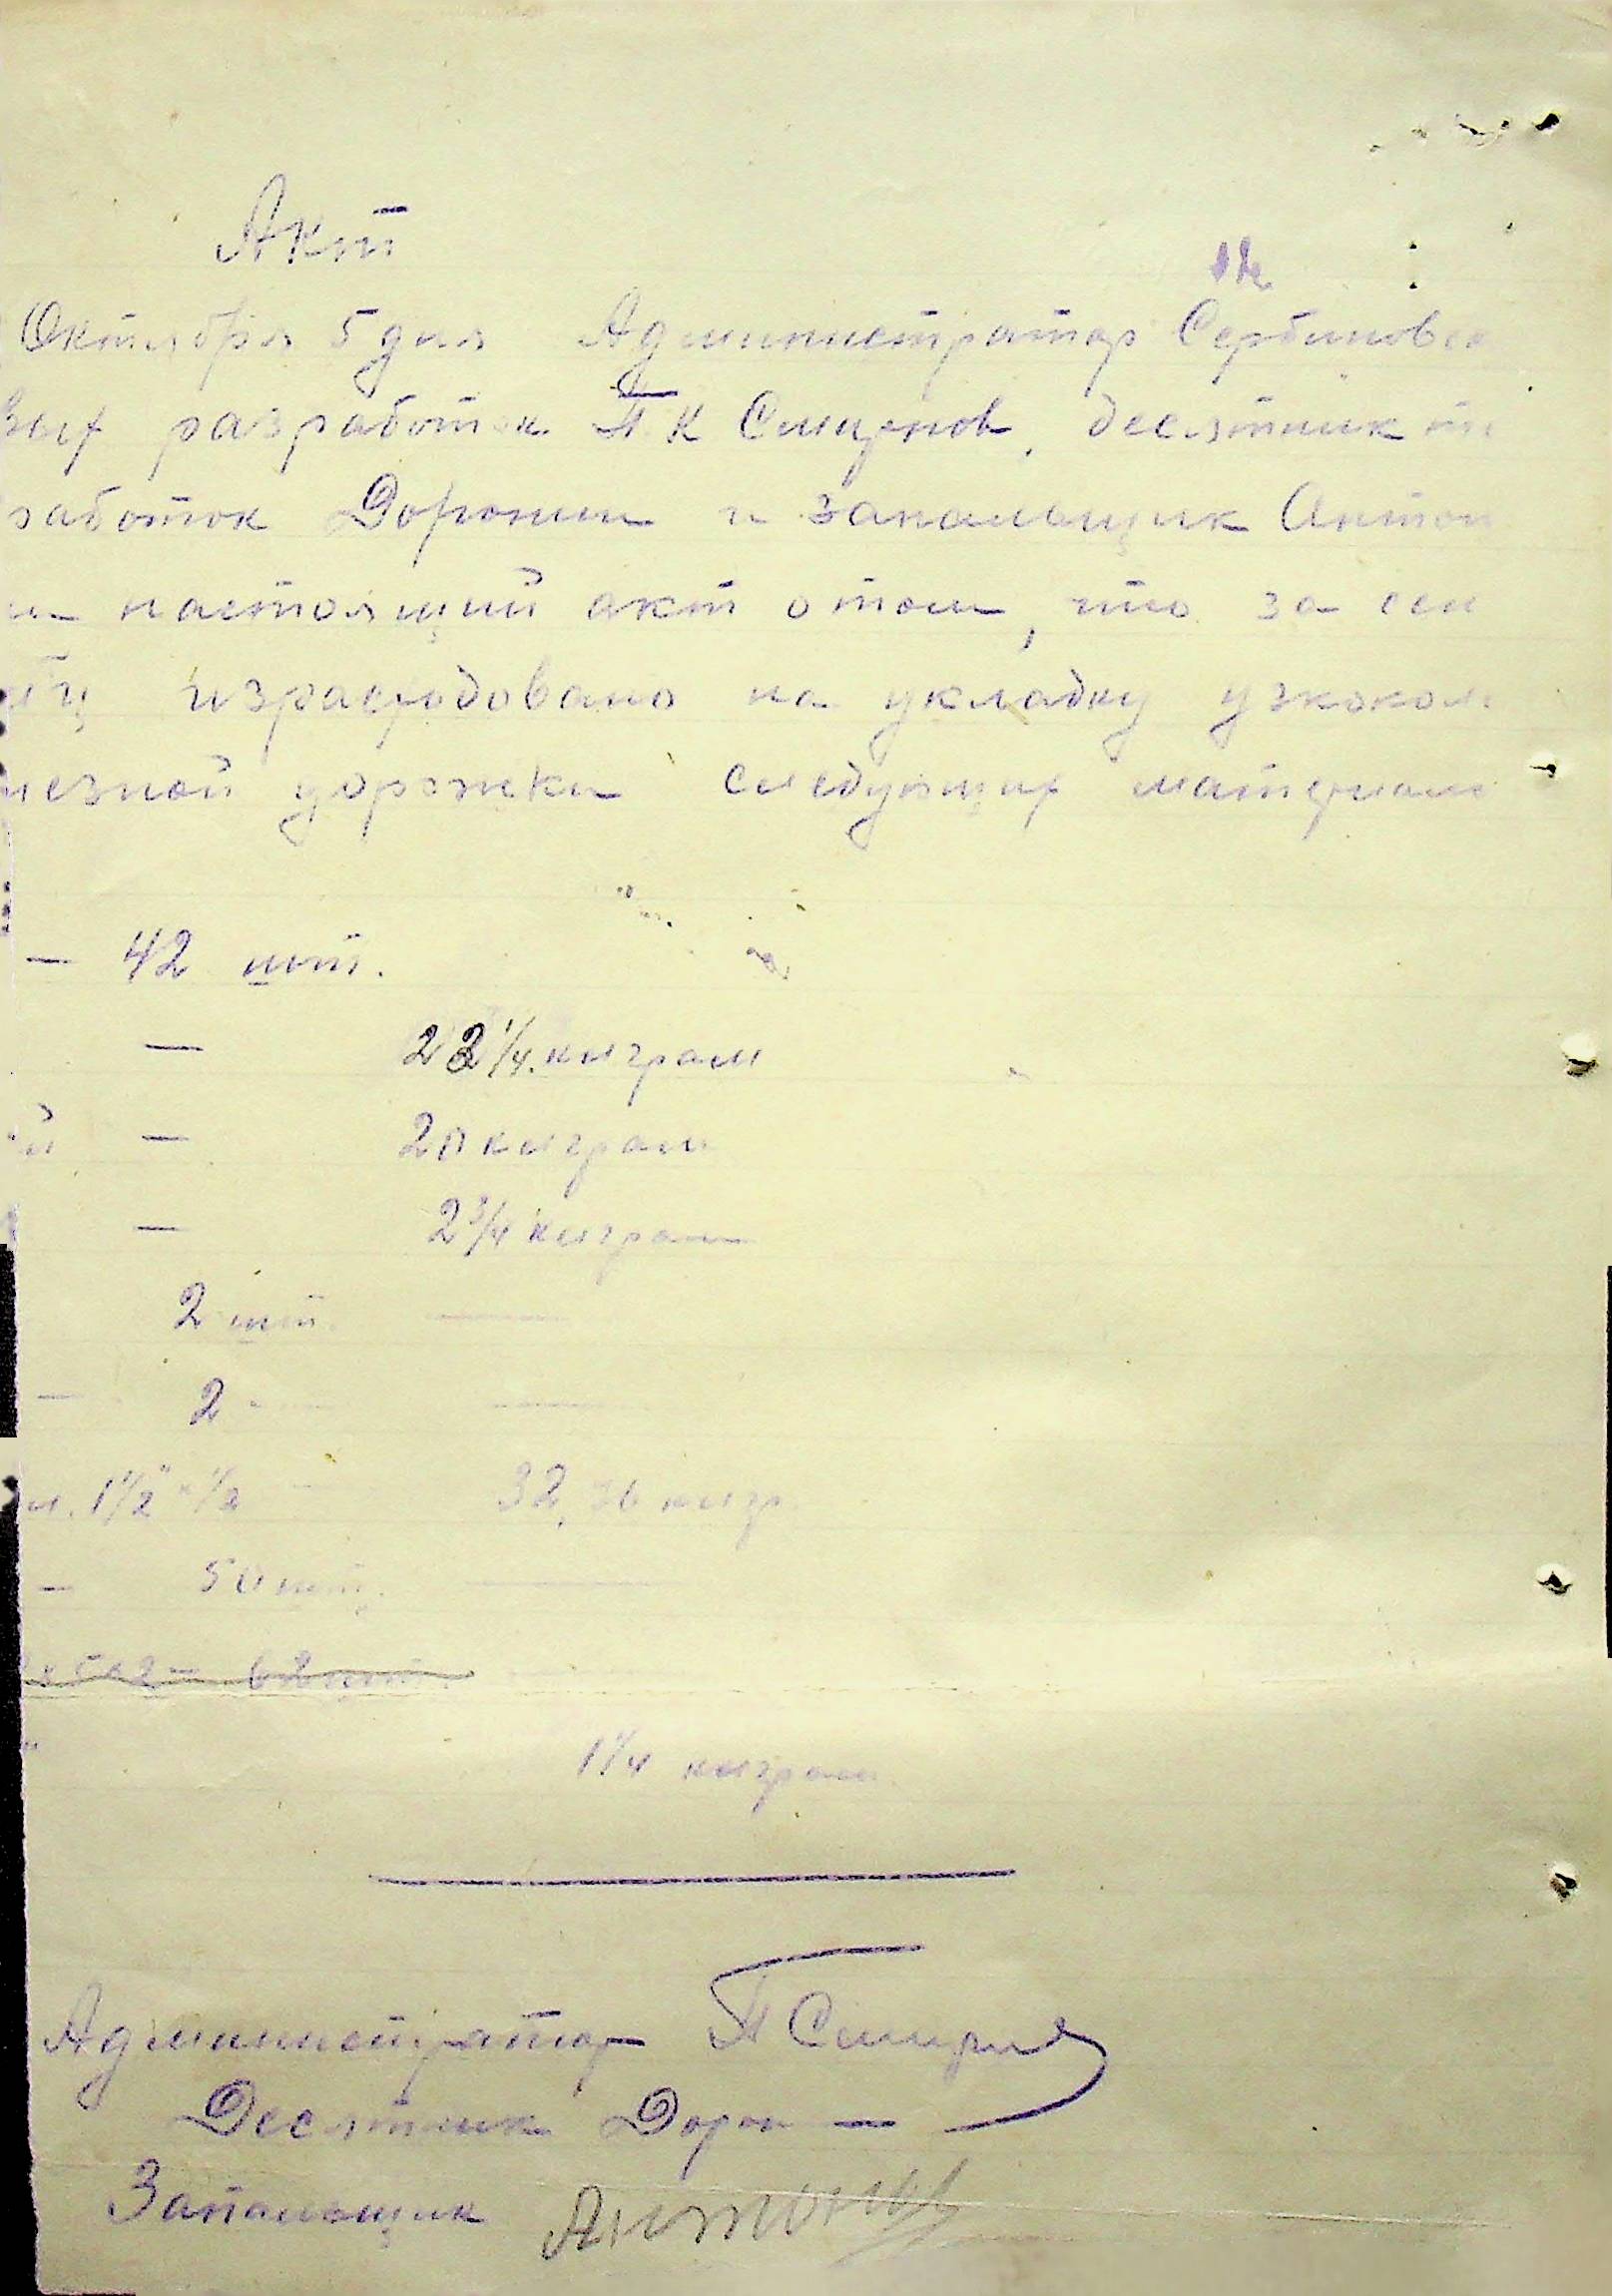 Акт
Октября 5 дня Администратор Сербиновск
вых разработок П. К Смирнов, десятник
работок Доронин и запальщик Антон
настоящий акт о том, что за сен
яц израсходовано на укладку узкокол
лезной дорожки следующих материало
— 42 шт.
— 22 1/4 килграм
й — 20 килграм
— 2 3/4 килграм
2 шт. —
— 2 — —
1 1/2" 1/2 — 32, килгр.
— 50 шт. —
1 1/4 килграм
Администратор П Смирнов
Десятник Дорон —
Запальщик Антонов